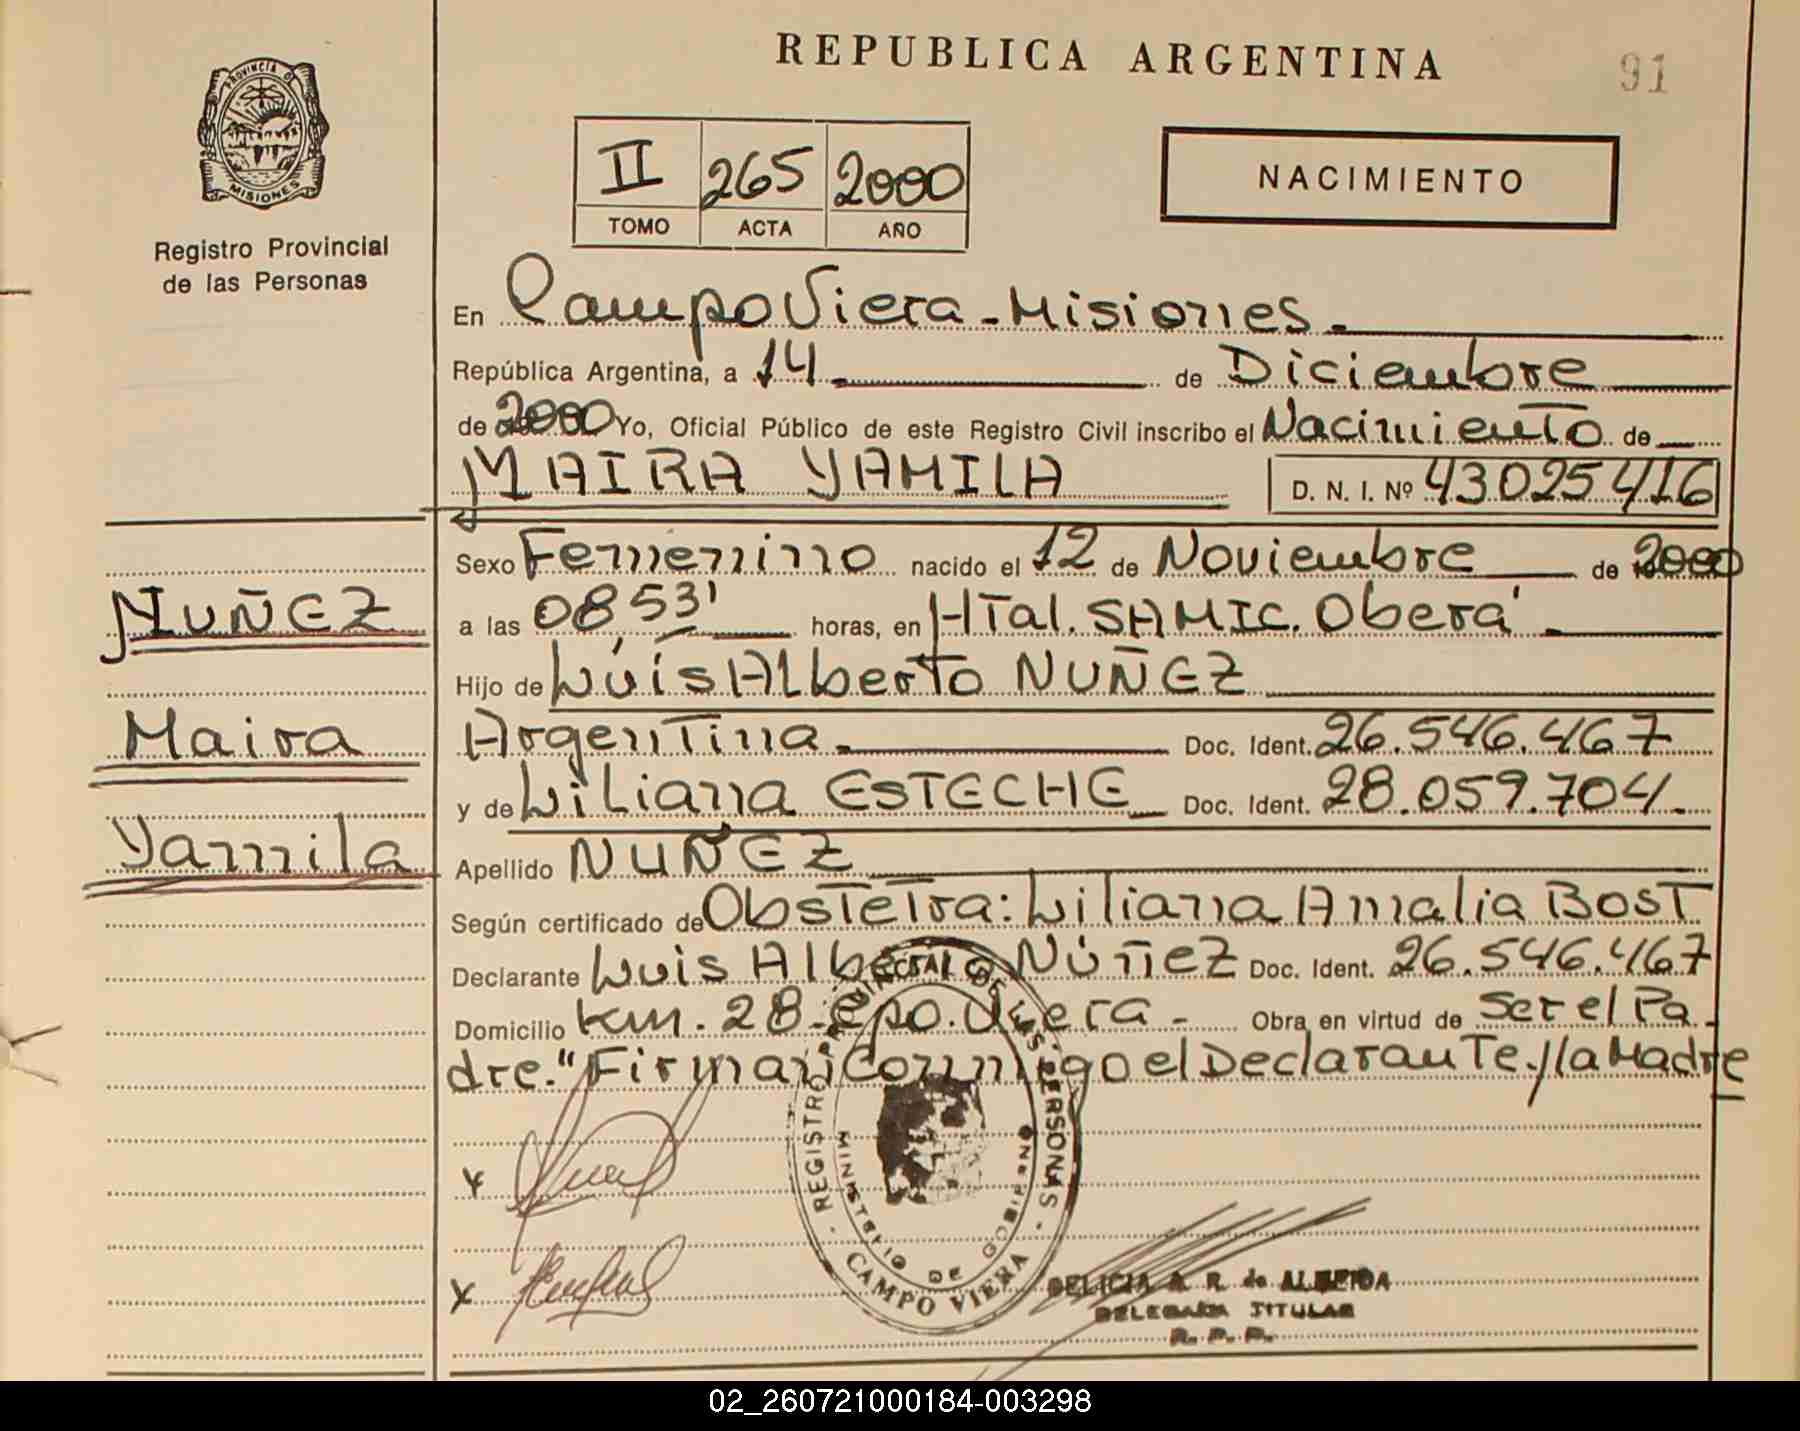 REPUBLICA ARGENTINA
91
PROVINCIA D
MISIONES
Registro Provincial
de las Personas
II 265 2000
TOMO ACTA AÑO
NACIMIENTO
En Campo Viera - Misiones.
República Argentina, a 14 de Diciembre
de 2000 Yo, Oficial Público de este Registro Civil inscribo el Nacimiento de
MAIRA YAMILA D. N. I. Nº 43025416
Sexo Femenino nacido el 12 de Noviembre de 2000
a las 0853' horas, en HTal. SAMIC. Oberá.
Hijo de Luís Alberto NUÑEZ
Argentina. Doc. Ident. 26.546.467
y de Liliana ESTECHE Doc. Ident. 28.059.704.
Apellido NUÑEZ
Según certificado de Obstetra: Liliana Amalia BOST
Declarante Luis Alberto Núñez Doc. Ident. 26.546.467
Domicilio km. 28. Cpo. Viera - Obra en virtud de Ser el Pa-
dre." Firman Conmigo el Declarante y la Madre
NUÑEZ
Maira
Yamila
X
X
REGISTRO PROVINCIAL DE LAS PERSONAS
MINISTERIO DE GOBIERNO
CAMPO VIERA
DELICIA A. R. de ALMEIDA
DELEGADA TITULAR
R. P. P.
02_260721000184-003298